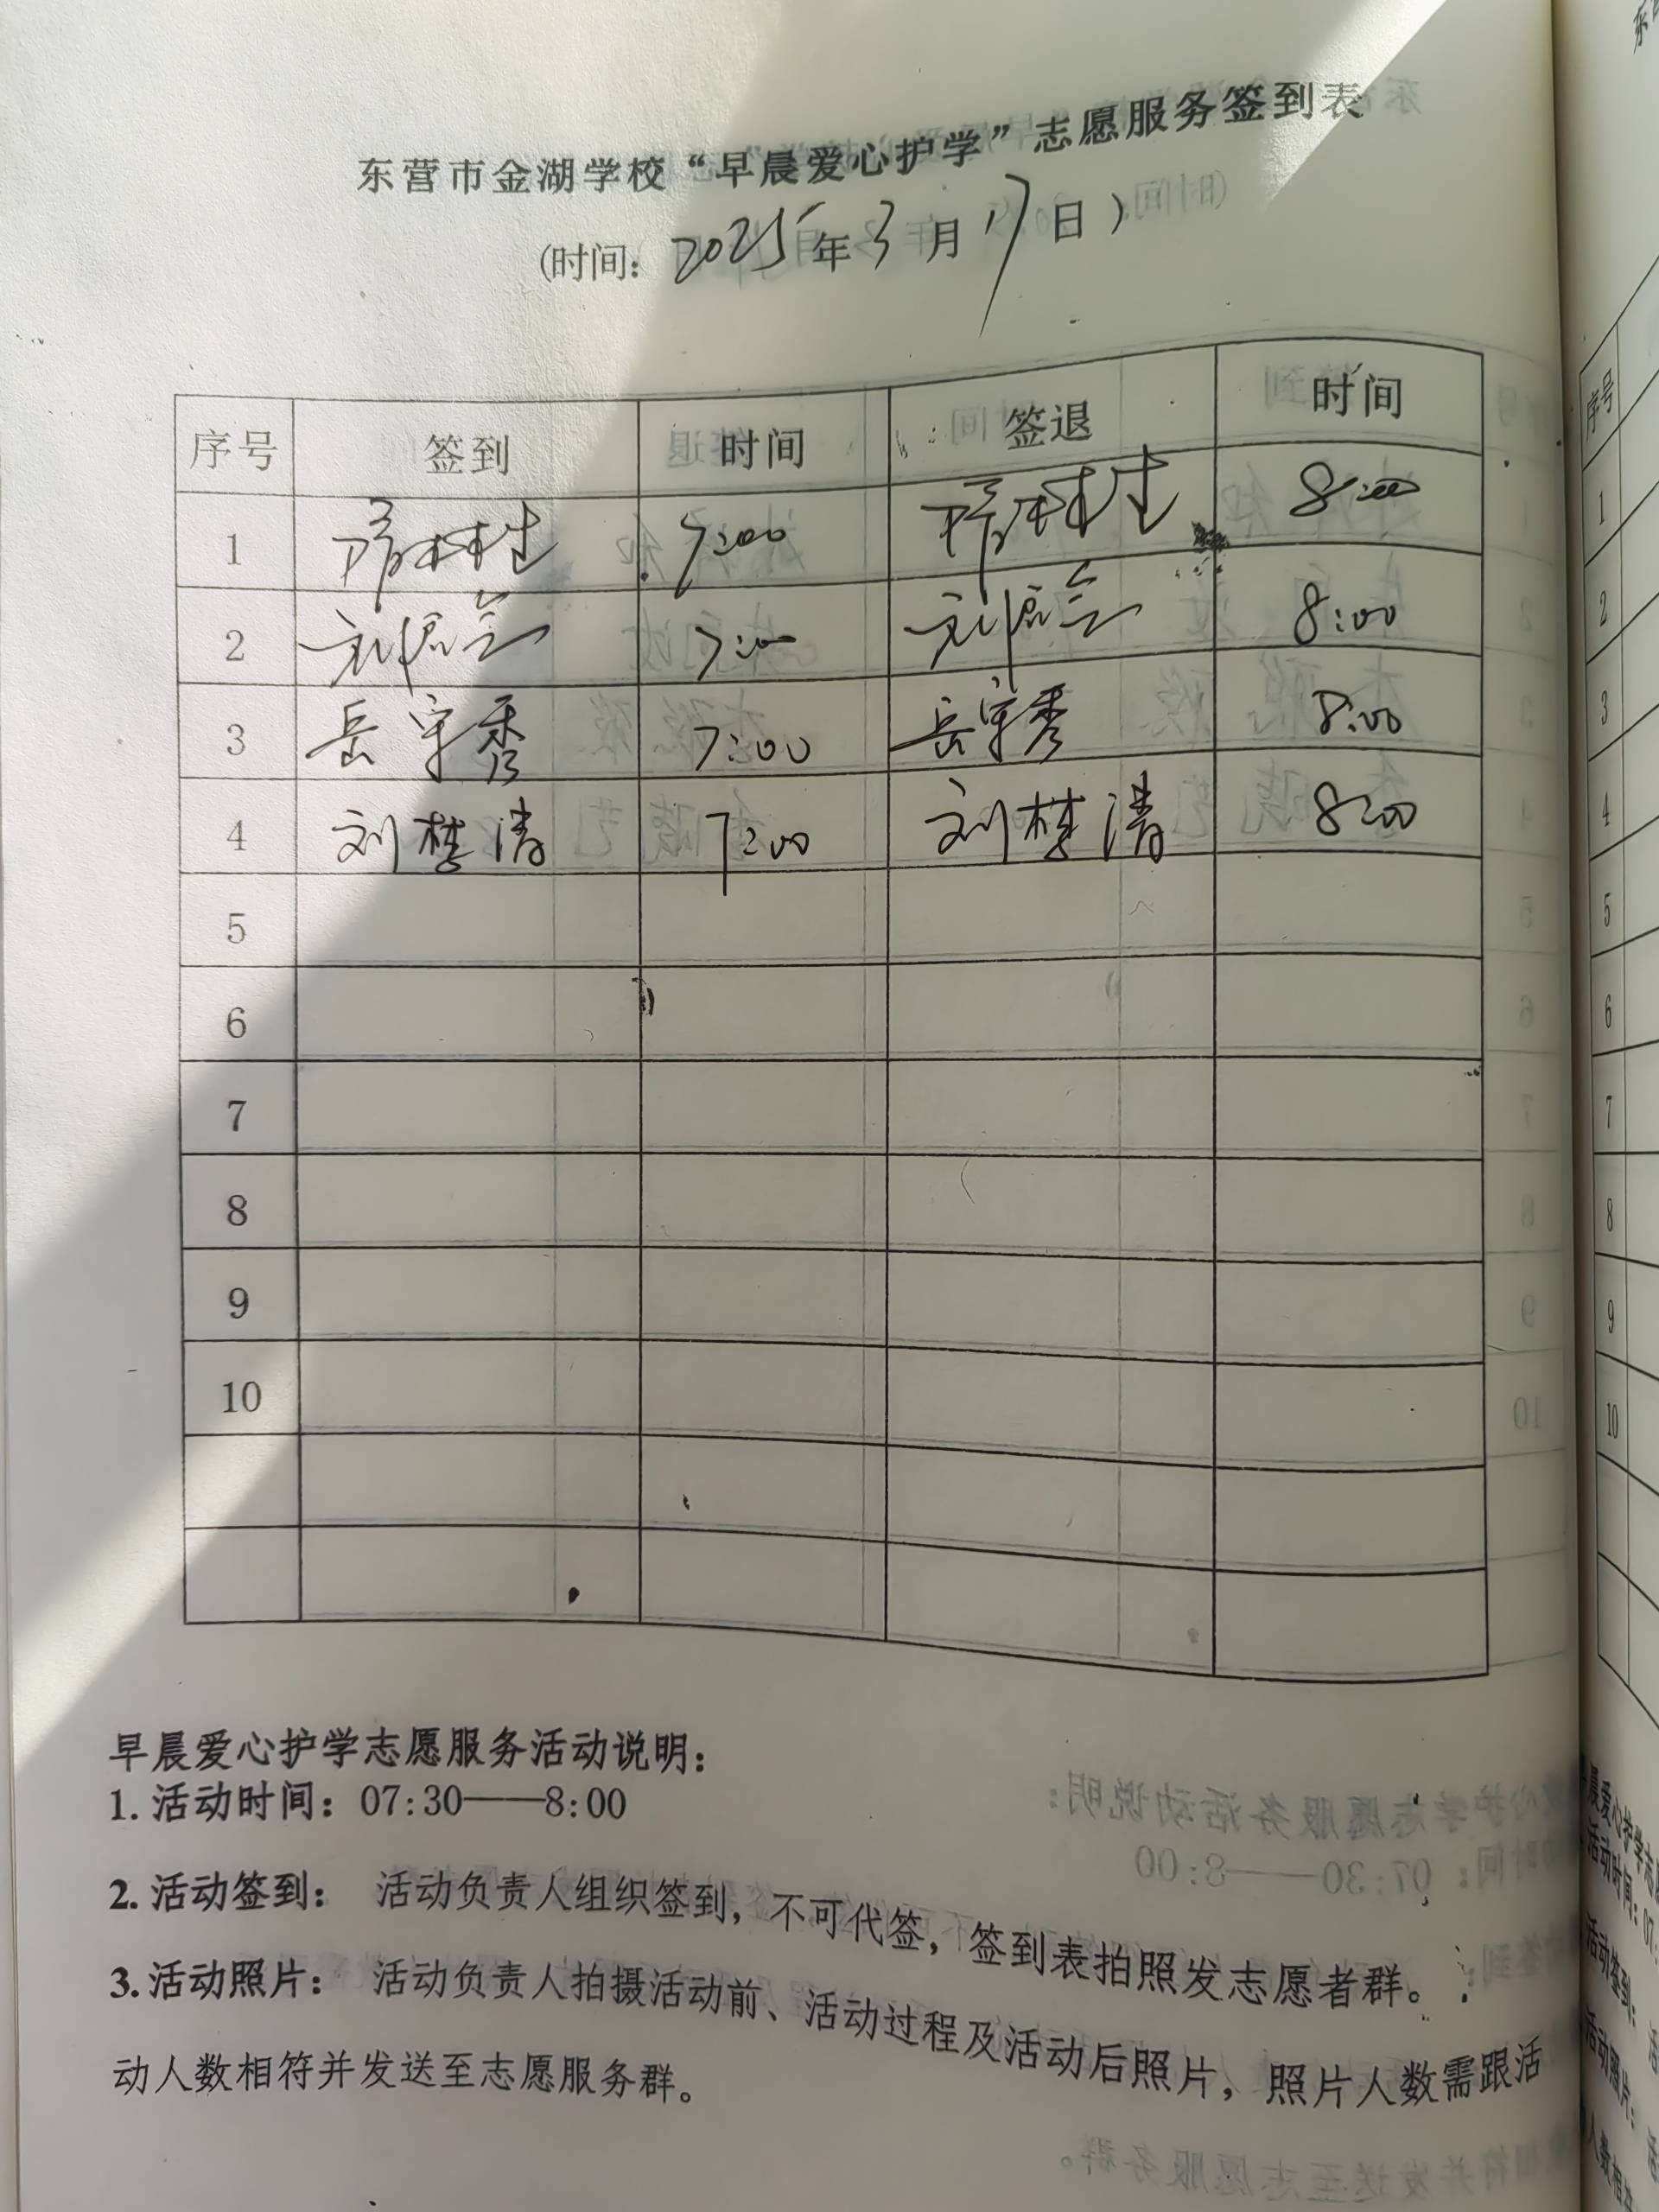 东营市金湖学校“早晨爱心护学”志愿服务签到表
(时间：2025年3月17日)
序号 签到 时间 签退 时间
1 7:00 8:00
2 7:00 8:00
3 岳宇秀 7:00 岳宇秀 8:00
4 刘梦清 7:00 刘梦清 8:00
5
6
7
8
9
10
早晨爱心护学志愿服务活动说明：
1.活动时间：07:30——8:00
2.活动签到： 活动负责人组织签到，不可代签，签到表拍照发志愿者群。
3.活动照片： 活动负责人拍摄活动前、活动过程及活动后照片，照片人数需跟活
动人数相符并发送至志愿服务群。
序号
1
2
3
4
5
6
7
8
9
10